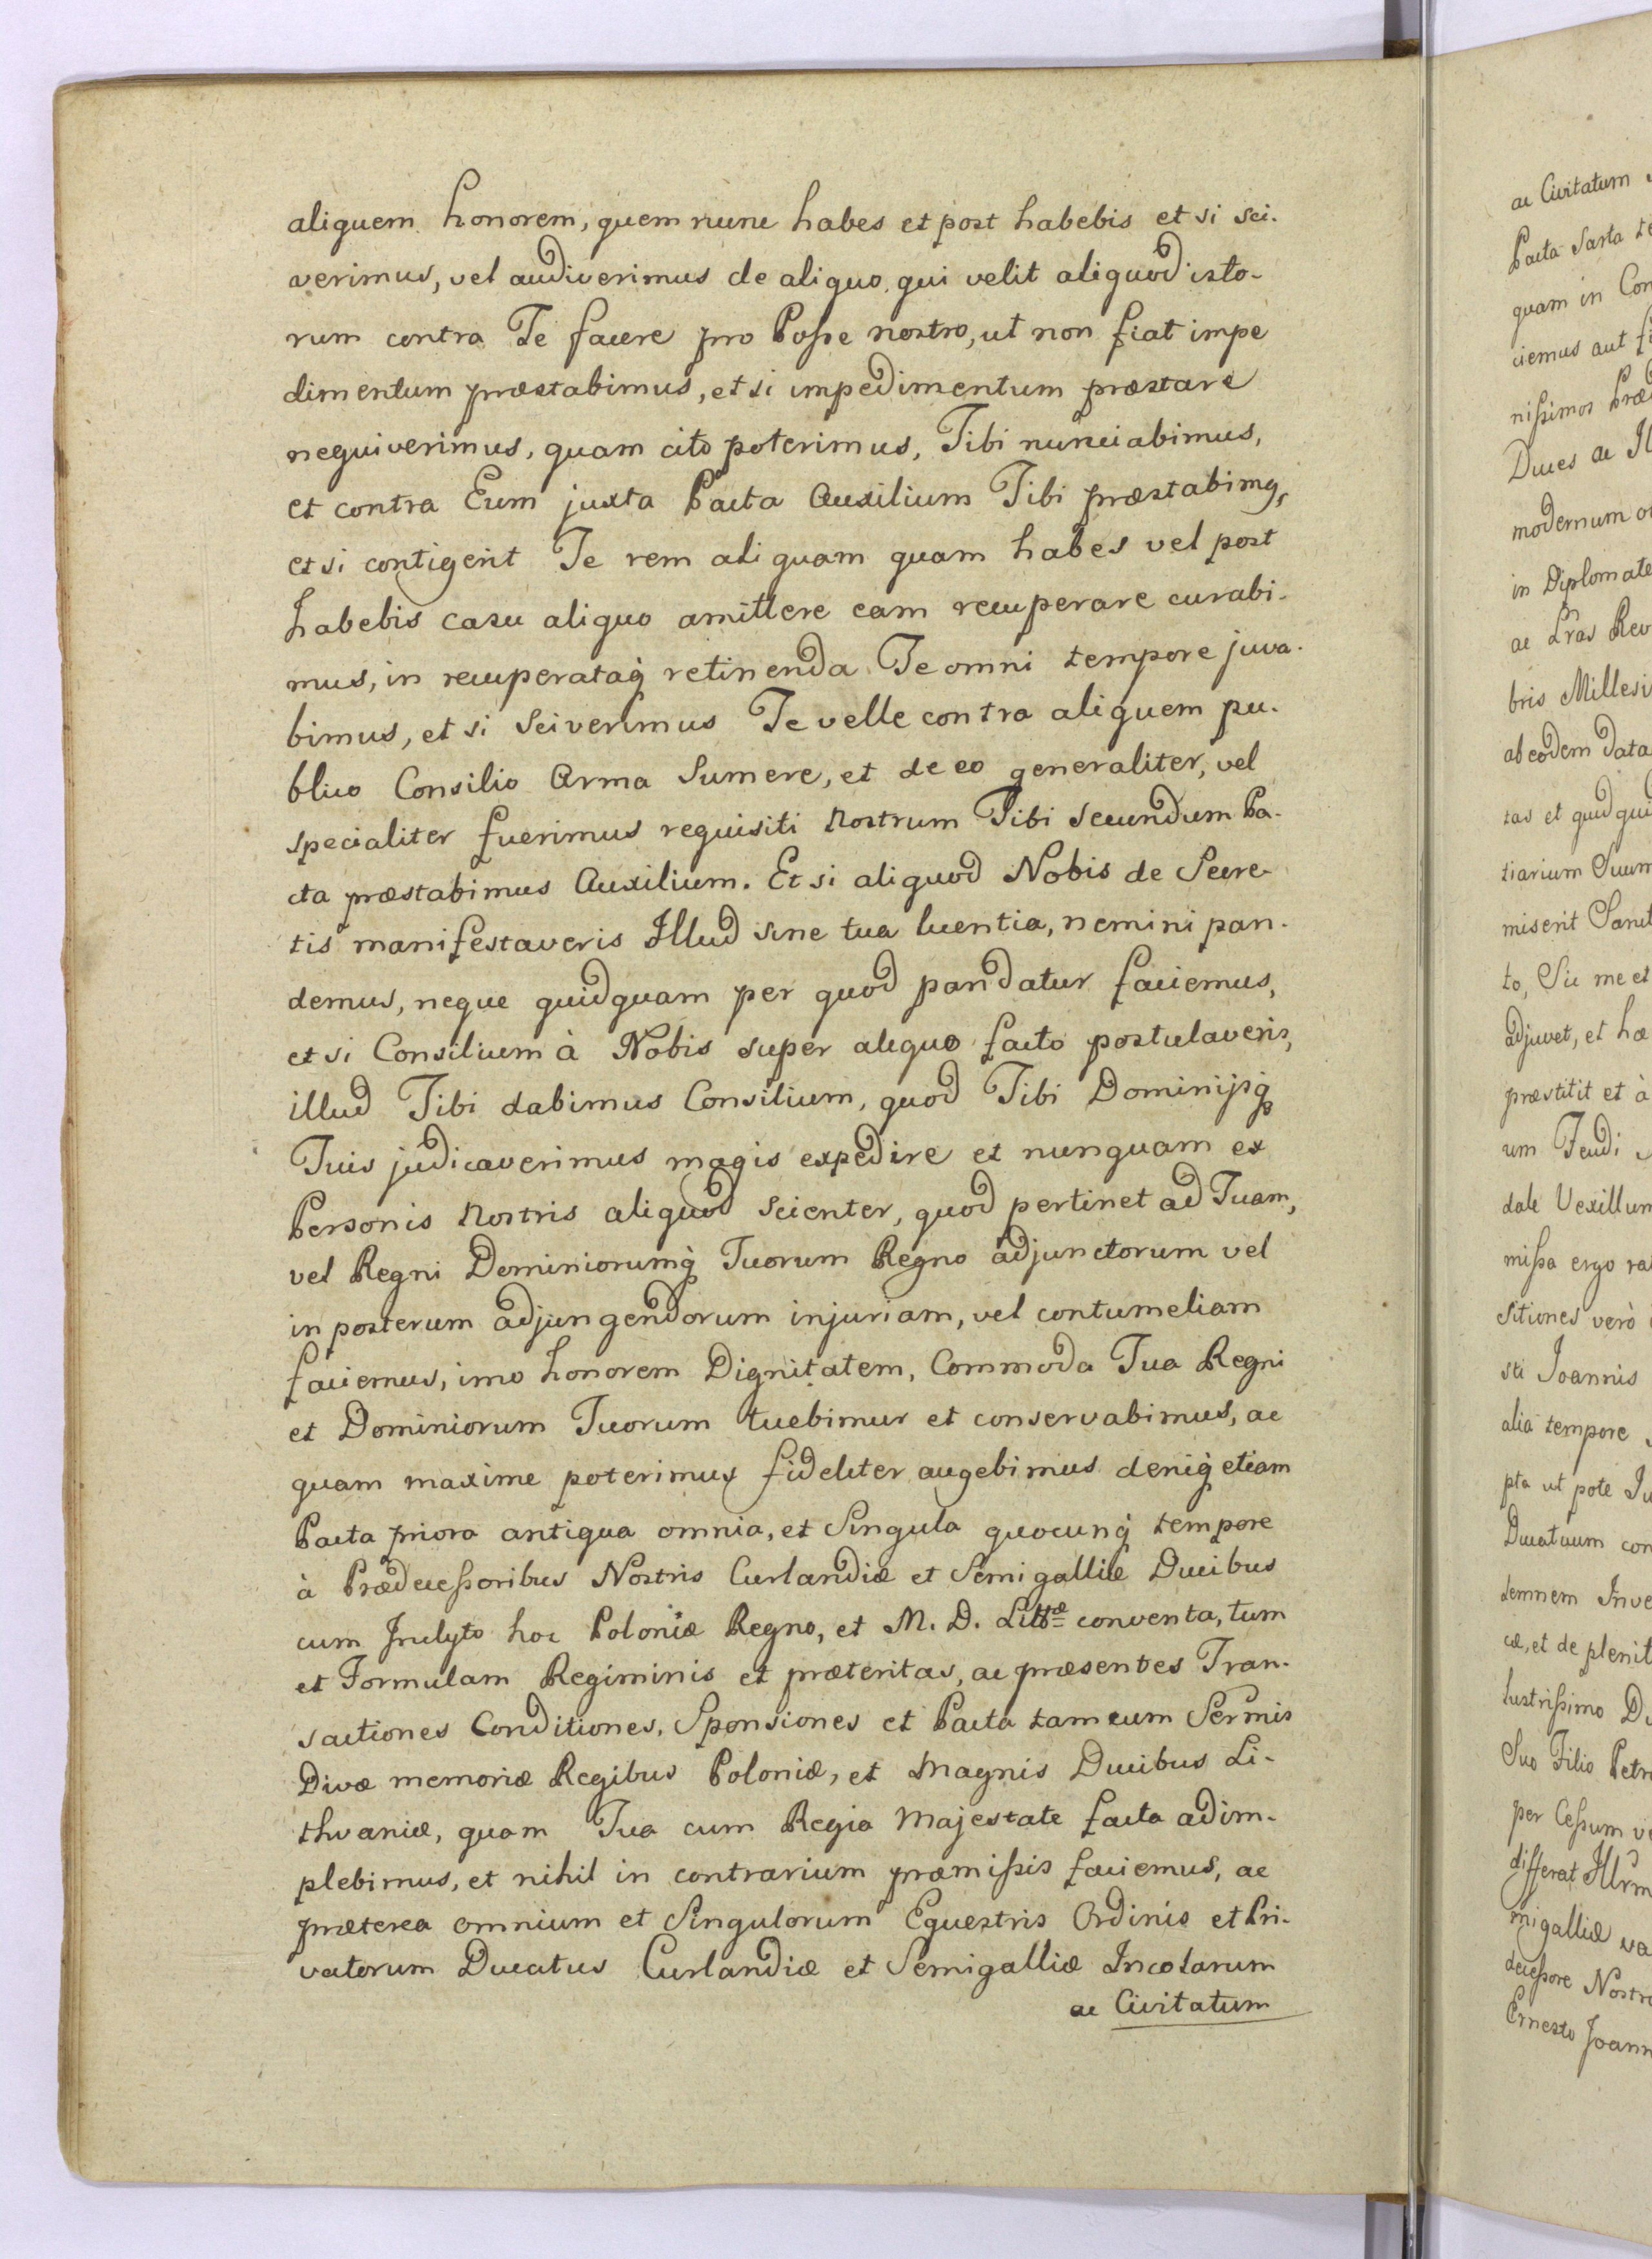 aliquem honorem, quem nunc habes et post habebis et si sci-
verimus, vel audiverimus de aliquo qui velit aliquod isto-
rum contra Te facere pro Posse nostro, ut non fiat impe
dimentum præstabimus, et si impedimentum præstare
nequiverimus, quam cito poterimus, Tibi nunciabimus,
et contra Eum juxta Pacta Auxilium Tibi præstabimq,
et si contigerit Te rem aliquam quam habes vel post
habebis casu aliquo amittere eam recuperare curabi-
mus, in recuperataq̀ retinenda Te omni tempore juva-
bimus, et si Sciverimus Te velle contra aliquem pu-
blico Consilio Arma Sumere, et de eo generaliter, vel
specialiter fuerimus requisiti Nostrum Tibi secundum Pa-
cta præstabimus Auxilium. Et si aliquod Nobis de Secre-
tis manifestaveris Illud sine tua licentia, nemini pan-
demus, neque quidquam per quod pandatur faciemus,
et si Consilium à Nobis super aliquo facto postulaveris,
illud Tibi dabimus Consilium, quod Tibi Dominijsq
Tuis judicaverimus magis expedire et nunquam ex
Personis Nostris aliquod Scienter, quod pertinet ad Tuam,
vel Regni Dominiorumq̀ Tuorum Regno adjunctorum vel
in posterum adjungendorum injuriam, vel contumeliam
faciemus, imo honorem Dignitatem, Commoda Tua Regni
et Dominiorum Tuorum tuebimur et conservabimus, ac
quam maxime poterimus fideliter augebimus deniq̀ etiam
Pacta priora antiqua omnia, et Singula quocunq̀ tempore
à Prædecessoribus Nostris Curlandiæ et Semigalliæ Ducibus
cum Inclyto hoc Poloniæ Regno, et M. D. Littæ conventa, tum
et Formulam Regiminis et præteritas, ac præsentes Tran-
sactiones Conditiones, Sponsiones et Pacta tam cum Sermis
Divæ memoriæ Regibus Poloniæ, et Magnis Ducibus Li-
thvaniæ, quam Tua cum Regia Majestate facta adim-
plebimus, et nihil in contrarium præmissis faciemus, ac
præterea omnium et Singulorum Equestris Ordinis et Pri-
vatorum Ducatus Curlandiæ et Semigalliæ Incolarum
ac Civitatum
ac Civitatum
Pacta Sarta te
quam in Con
ciemus aut fi
nissimos Præd
Duces ac Il
modernum o
in Diplomate
ac Lras Rev
bris Millesi
ab eodem data
tas et quidqui
tiarium Suum
miserit Sanct
to, Sic me et
adjuvet, et hæ
præstitit et à
um Feudi
dale Vexillum
missa ergo ra
sitiones verò
sti Joannis
alia tempore
pta ut pote Ju
Ducatuum con
lemnem Inve
cæ, et de plenit
lustrissimo D
Suo Filio Petr
per Cessum v
differat Illrm
migalliæ va
decessore Nostro
Ernesto Joann